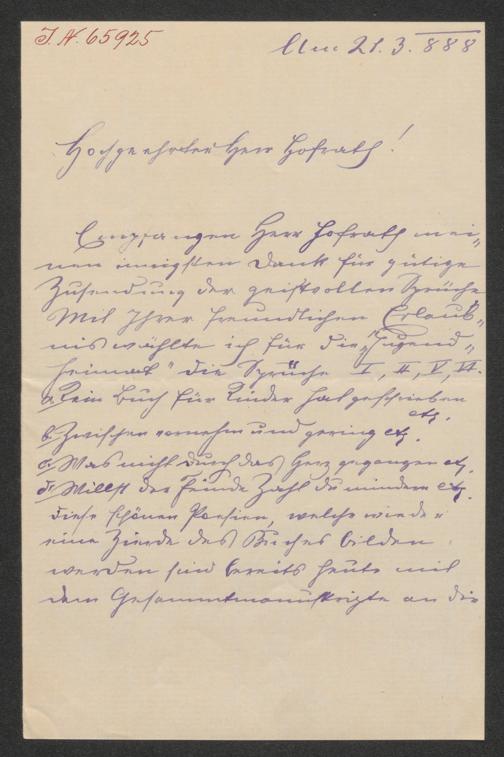 J.N. 65925
Am 21. 3. 888
Hochgeehrter Herr Hofrath!
Empfangen Herr Hofrath mei„
nen innigsten Dank für gütige
Zusendung der geistvollen Sprüche
Mit Ihrer freundlichen Erlaub„
nis wählte ich für die „Jugend„
heimat" die Sprüche I, II, V, VI.
a. Kein Buch für Kinder hat geschrieben
etz.
b. Zwischen vornehm und gering etz.
c. Was nicht durch das Herz gegangen etz.
d. Willst der Feinde Zahl du mindern etz.
diese schönen Poesien, welche wieder
eine Zierde des Buches bilden
werden sind bereits heute mit
dem Gesammtmanuskripte an die